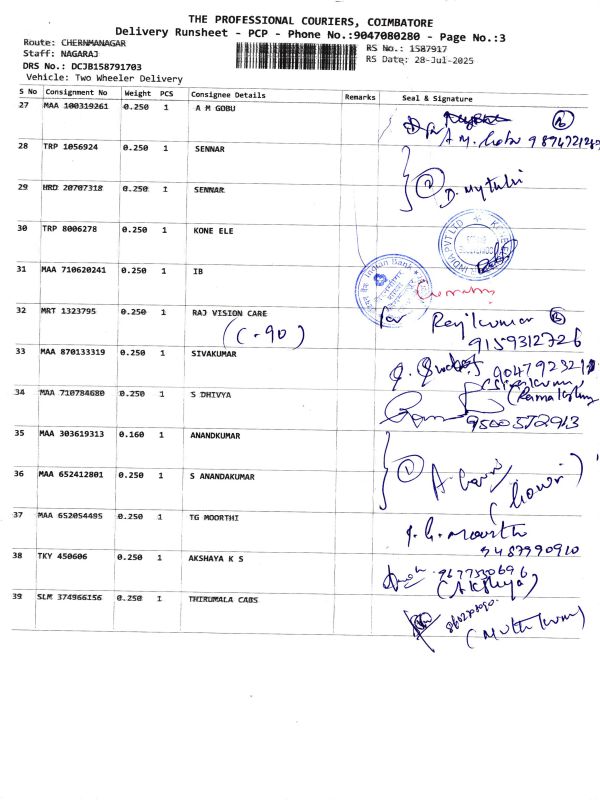 THE PROFESSIONAL COURIERS, COIMBATORE
Delivery Runsheet - PCP - Phone No.:9047080280 - Page No.:3
Route: CHERNMANAGAR
RS No.: 1587917
Staff: NAGARAJ
RS Date: 28-Jul-2025
DRS No.: DCJB158791703
Vehicle: Two Wheeler Delivery
S No Consignment No Weight PCS Consignee Details Remarks Seal & Signature
27 MAA 100319261 0.250 1 A M GOBU
28 TRP 1056924 0.250 1 SENNAR
2 D. Mytuli
29 HRD 20707318 0.250 1 SENNAR
30 TRP 8006278 0.250 1 KONE ELE
INDIA PVT LTD
31 MAA 710620241 0.250 1 IB
Indian Bank
32 MRT 1323795 0.250 1 RAJ VISION CARE
for Rajkumar
(C-90)
9159312726
33 MAA 870133319 0.250 1 SIVAKUMAR
34 MAA 710784680 0.250 1 S DHIVYA
9500572913
35 MAA 303619313 0.160 1 ANANDKUMAR
36 MAA 652412801 0.250 1 S ANANDAKUMAR
37 MAA 652054495 0.250 1 TG MOORTHI
9487990910
38 TKY 450606 0.250 1 AKSHAYA K S
(Akshaya)
39 SLM 374966156 0.250 1 THIRUMALA CABS
(Muthukumar)